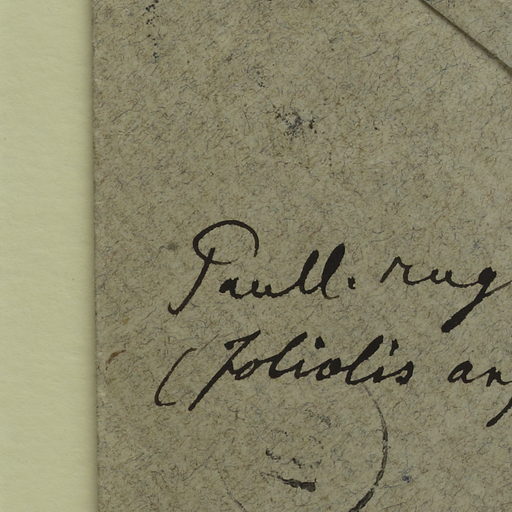 Paull. rug
(foliolis an